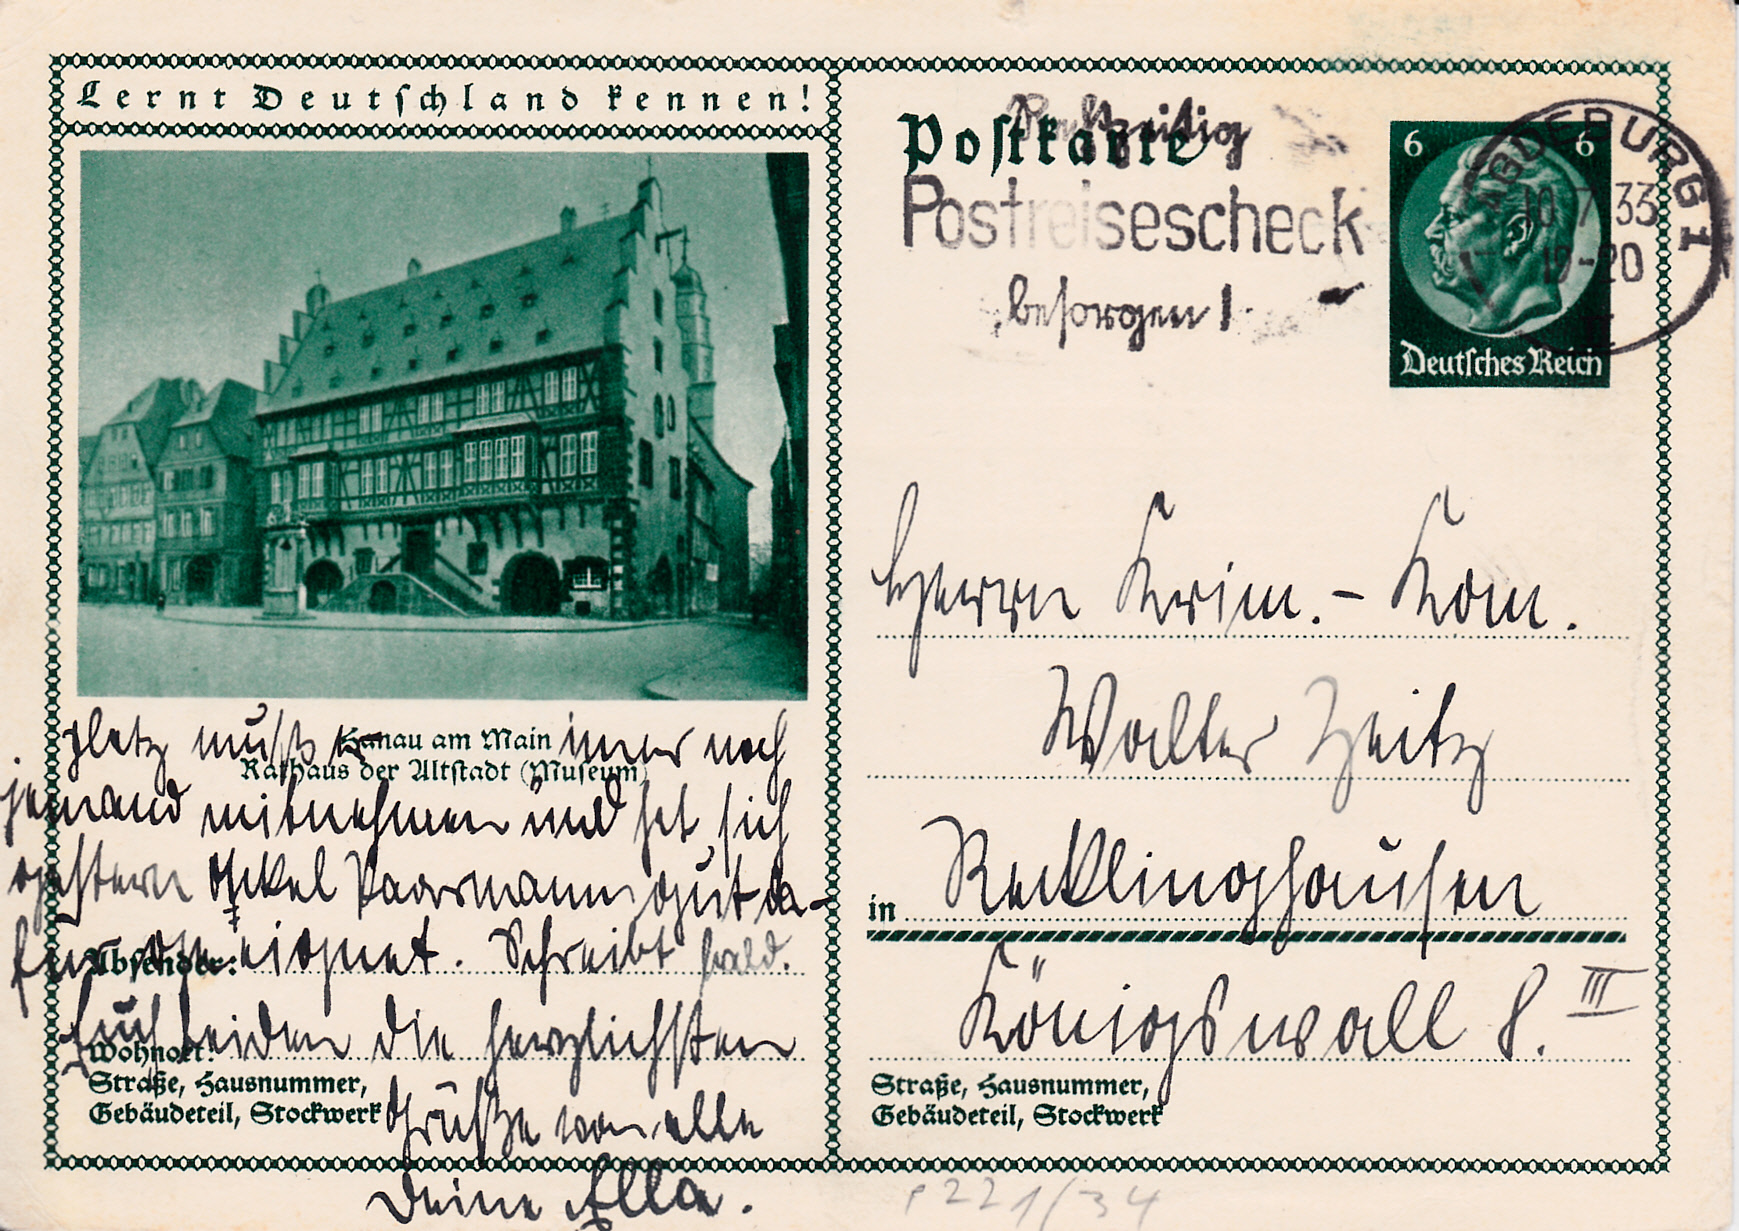 Lernt Deutschland kennen!
Hanau am Main
Rathaus der Altstadt (Museum)
platz muß er immer noch
jemand mitnehmen und hat sich
gestern Onkel Paarmann gut da-
für geeignet. Schreibt bald.
Euch beiden die herzlichsten
Grüße von alle
Deine Ella.
Absender:
Wohnort:
Straße, Hausnummer,
Gebäudeteil, Stockwerk
Postkarte
Rechtzeitig
Postreisescheck
besorgen!
MAGDEBURG 1
10.7.33
19-20
6 6
Deutsches Reich
Herrn Krim.-Kom.
Walter Zeitz
in Recklinghausen
Königswall 8. III
Straße, Hausnummer,
Gebäudeteil, Stockwerk
P 221/34